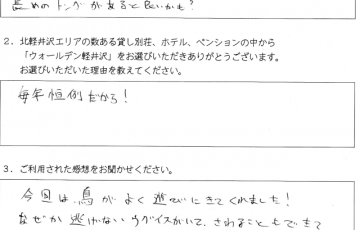 長めのトングがあると良いかも?
2．北軽井沢エリアの数ある貸し別荘、ホテル、ペンションの中から
「ウォールデン軽井沢」をお選びいただきありがとうございます。
お選びいただいた理由を教えてください。
毎年恒例だから!
3．ご利用された感想をお聞かせください。
今回は、鳥がよく遊びにきてくれました!
なぜか逃げないウグイスがいて、さわることもできて